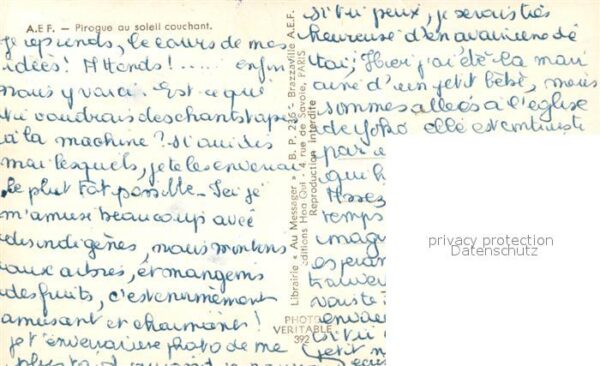 A.E.F. — Pirogue au soleil couchant.
je reprends, le cours de mes
idées! Attends!..... enfin
nous y voici. Est-ce que
tu voudrais des chants tapés
à la machine? Si oui dis
moi lesquels, je te les enverrai
le plut tôt possible. Ici je
m'amuse beaucoup avec
des indigènes, nous montons
aux arbres, et mangeons
des fruits, c'est enormément
amusant et charmant!
je t'enverrai une photo de me
Librairie « Au Messager » B. P. 236 - Brazzaville A.E.F.
Editions Hoa Qui - 4 rue de Savoie, PARIS
Reproduction interdite
PHOTO
VERITABLE
392
si tu peux, je serais très
heureuse d'en avoir une de
toi; Hier j'ai été la marr
aine d'un petit bébé, nous
sommes allées à l'église
de elle est
par
qui
Assez
temps
imag
esperan
trouver
vous te
envoie
si tu
petit
privacy protection
Datenschutz